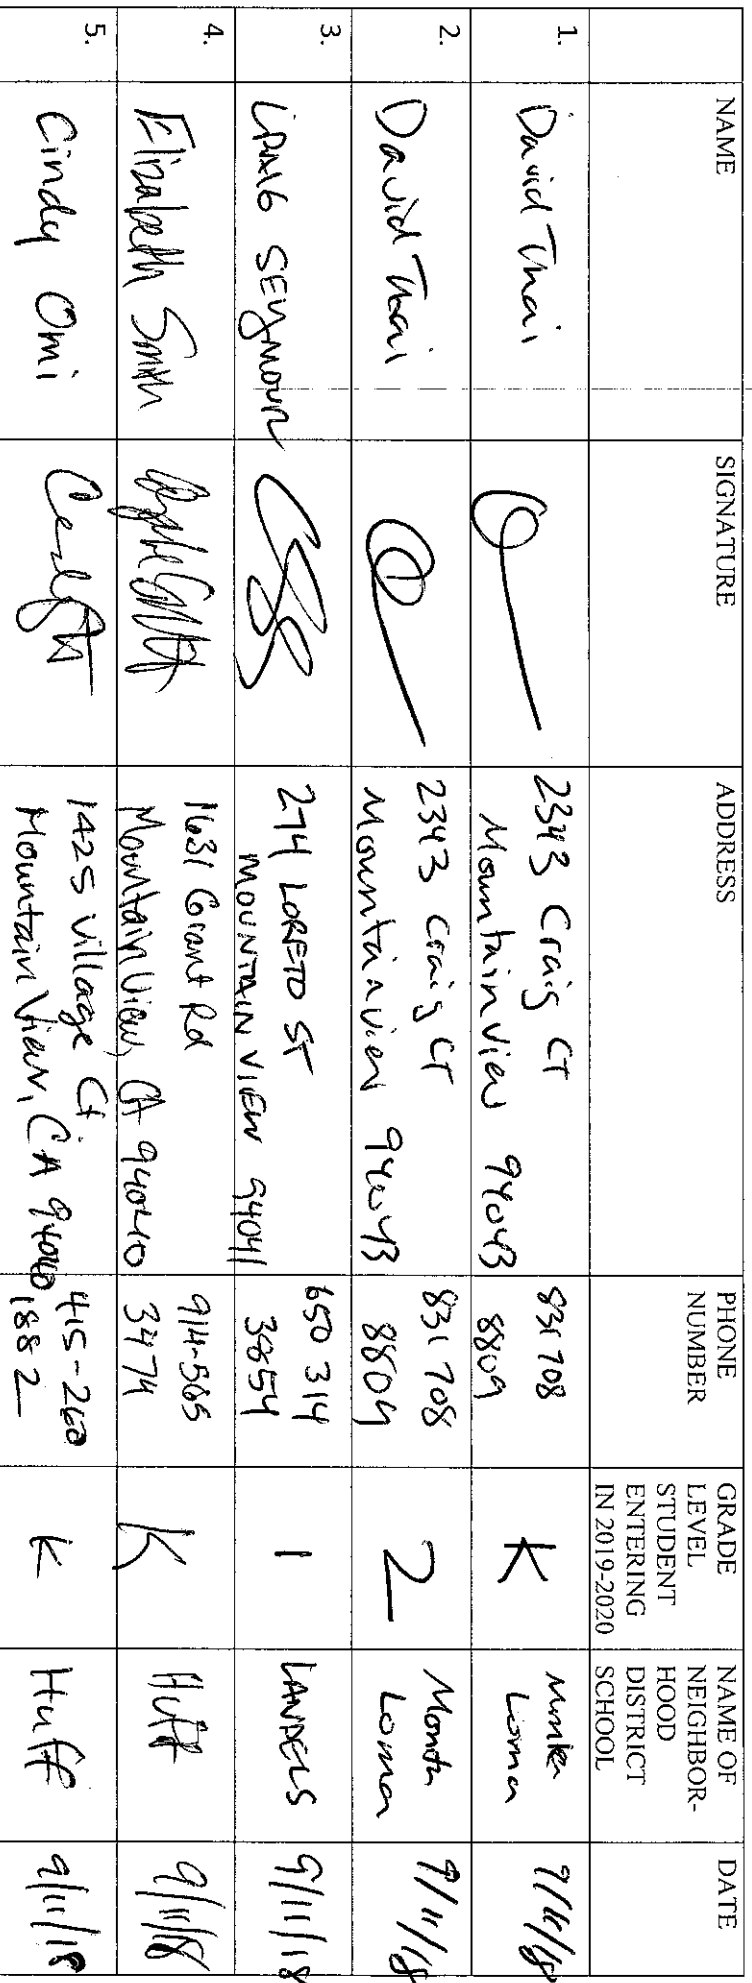 NAME
SIGNATURE
ADDRESS
PHONE
NUMBER
GRADE
LEVEL
STUDENT
ENTERING
IN 2019-2020
NAME OF
NEIGHBOR-
HOOD
DISTRICT
SCHOOL
DATE
1.
David Thai
2343 Craig Ct
Mountain View 94043
831 708
8809
K
Monta
Loma
9/11/18
2.
David Thai
2343 Craig Ct
Mountain View 94043
831 708
8809
2
Monta
Loma
9/11/18
3.
CRAIG SEYMOUR
274 LORETO ST
MOUNTAIN VIEW 94041
650 314
3854
1
LANDELS
9/11/18
4.
Elizabeth Smith
1631 Grant Rd
Mountain View, CA 94040
914-565
3474
K
Huff
9/11/18
5.
Cindy Omi
1425 Village Ct
Mountain View, CA 94040
415-260
1882
K
Huff
9/11/18